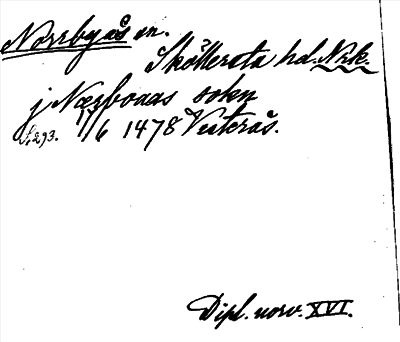 Norrbyås sn.
Sköllersta hd. Nrk.
j Nærboaas soken
S. 293. 17/6 1478 Vesterås.
Dipl. norv. XVI.